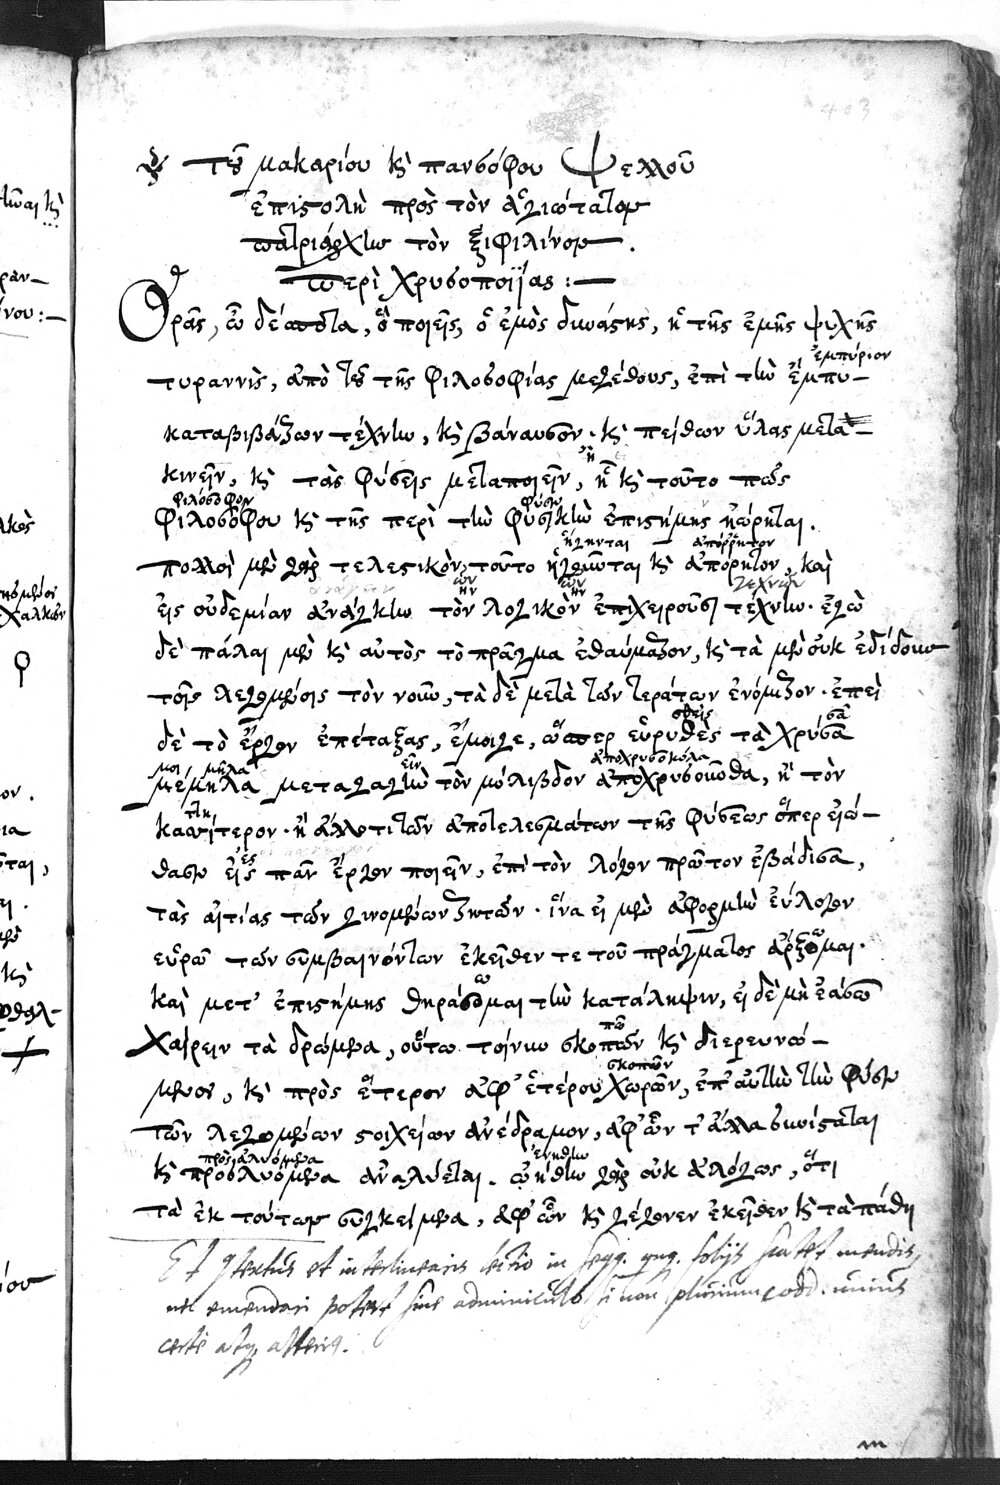 403
τοῦ μακαρίου κὶ πανσόφου Ψελλοῦ
ἐπιστολὴ πρὸς τὸν ἁγιώτατον
πατριάρχην τὸν ξιφιλίνον.
περὶ χρυσοποιΐας:
Ὁρᾶς, ὦ δέσποτα, ὃ ποιεῖς, ὁ ἐμὸς δυνάστης, ἡ τῆς ἐμῆς ψυχῆς
ἐμπύριον
τυραννὶς, ἀπὸ τοῦ τῆς φιλοσοφίας μεγέθους, ἐπὶ τὴν ἔμπυ-
καταβιβάζων τέχνην, κὶ βάναυσον. κὶ πείθων ὕλας μετα-
ἢ
κινεῖν, κὶ τὰς φύσεις μεταποιεῖν, ἢ κὶ τοῦτο πῶς
φιλόσοφον φύσιν
φιλοσόφου κὶ τῆς περὶ τὴν φύσικὴν ἐπιστήμης ἠώρηται.
ἥγηνται ἀπόῤῥητον
πολλοὶ μὲν γὰρ τελεστικὸν, τοῦτο ἡγοῦνται κὶ ἀπόρητον, καὶ
εἰς οὐδεμίαν ἀνάγκην τὸν λογικὸν ἐπιχειροῦσι τέχνην. ἐγὼ
δὲ πάλαι μὲν κὶ αὐτὸς τὸ πρᾶγμα ἐθαύμαζον, κὶ τὰ μὲν οὐκ ἐδίδουν
τοῖς λεγομένοις τὸν νοῦν, τὰ δὲ μετὰ τῶν τεράτων ἐνόμιζον. ἐπεὶ
σθεὶς σᾶ
δὲ τὸ ἔργον ἐπέταξας, ἔμοιγε, ὥσπερ εὑρυθὲς τὰ χρύσᾶ
μοι, μῆλα εῖν ἀποχρυσοκόλα
μέμηλα μεταλαγὼ τὸν μόλιβδον ἀποχρυσοῦσθα, ἢ τὸν
κασσίτερον. ἢ ἀλλοτιτῶν ἀποτελεσμάτων τῆς φύσεως ὅπερ εἰώ-
θασιν εἰς πᾶν ἔργον ποιεῖν, ἐπὶ τὸν λόγον πρῶτον ἐβάδισα,
τὰς αἰτίας τῶν γινομένων ζητῶν. ἵνα εἰ μὲν ἀφορμὴν εὔλογον
εὕρω τῶν συμβαινόντων ἐκεῖθεν τε τοῦ πράγματος ἄρξομαι.
ω
καὶ μετ' ἐπιστήμης θηράσομαι τὴν κατάληψιν, εἰ δὲ μὴ ἐάσω
πῶ
χαίρειν τὰ δρώμενα, οὕτω τοίνυν σκοπῶν κὶ διερευνώ-
σκοπῶν
μενον, κὶ πρὸς ἕτερον ἀφ' ἑτέρου χωρῶν, ἐπ' αὐτὴν τὴν φύσιν
τῶν λεγομένων στοιχείων ἀνέδραμον, ἀφ' ὧν τ' ἄλλα συνίσταται
προσαλυόμενα
κὶ προσλυόμενα ἀναλύεται. ᾠήθην γὰρ οὐκ ἀλόγως, ὅτι
τὰ ἐκ τούτων συγκείμενα, ἀφ' ὧν κὶ γέγονεν ἐκεῖθεν κὶ τὰ πάθη
Et textus et interlinearis lectio in seqq. foliis scatet mendis,
nec emendari potest sine adminiculo, si non plurium codd. unius
certe atq. alterius.
m